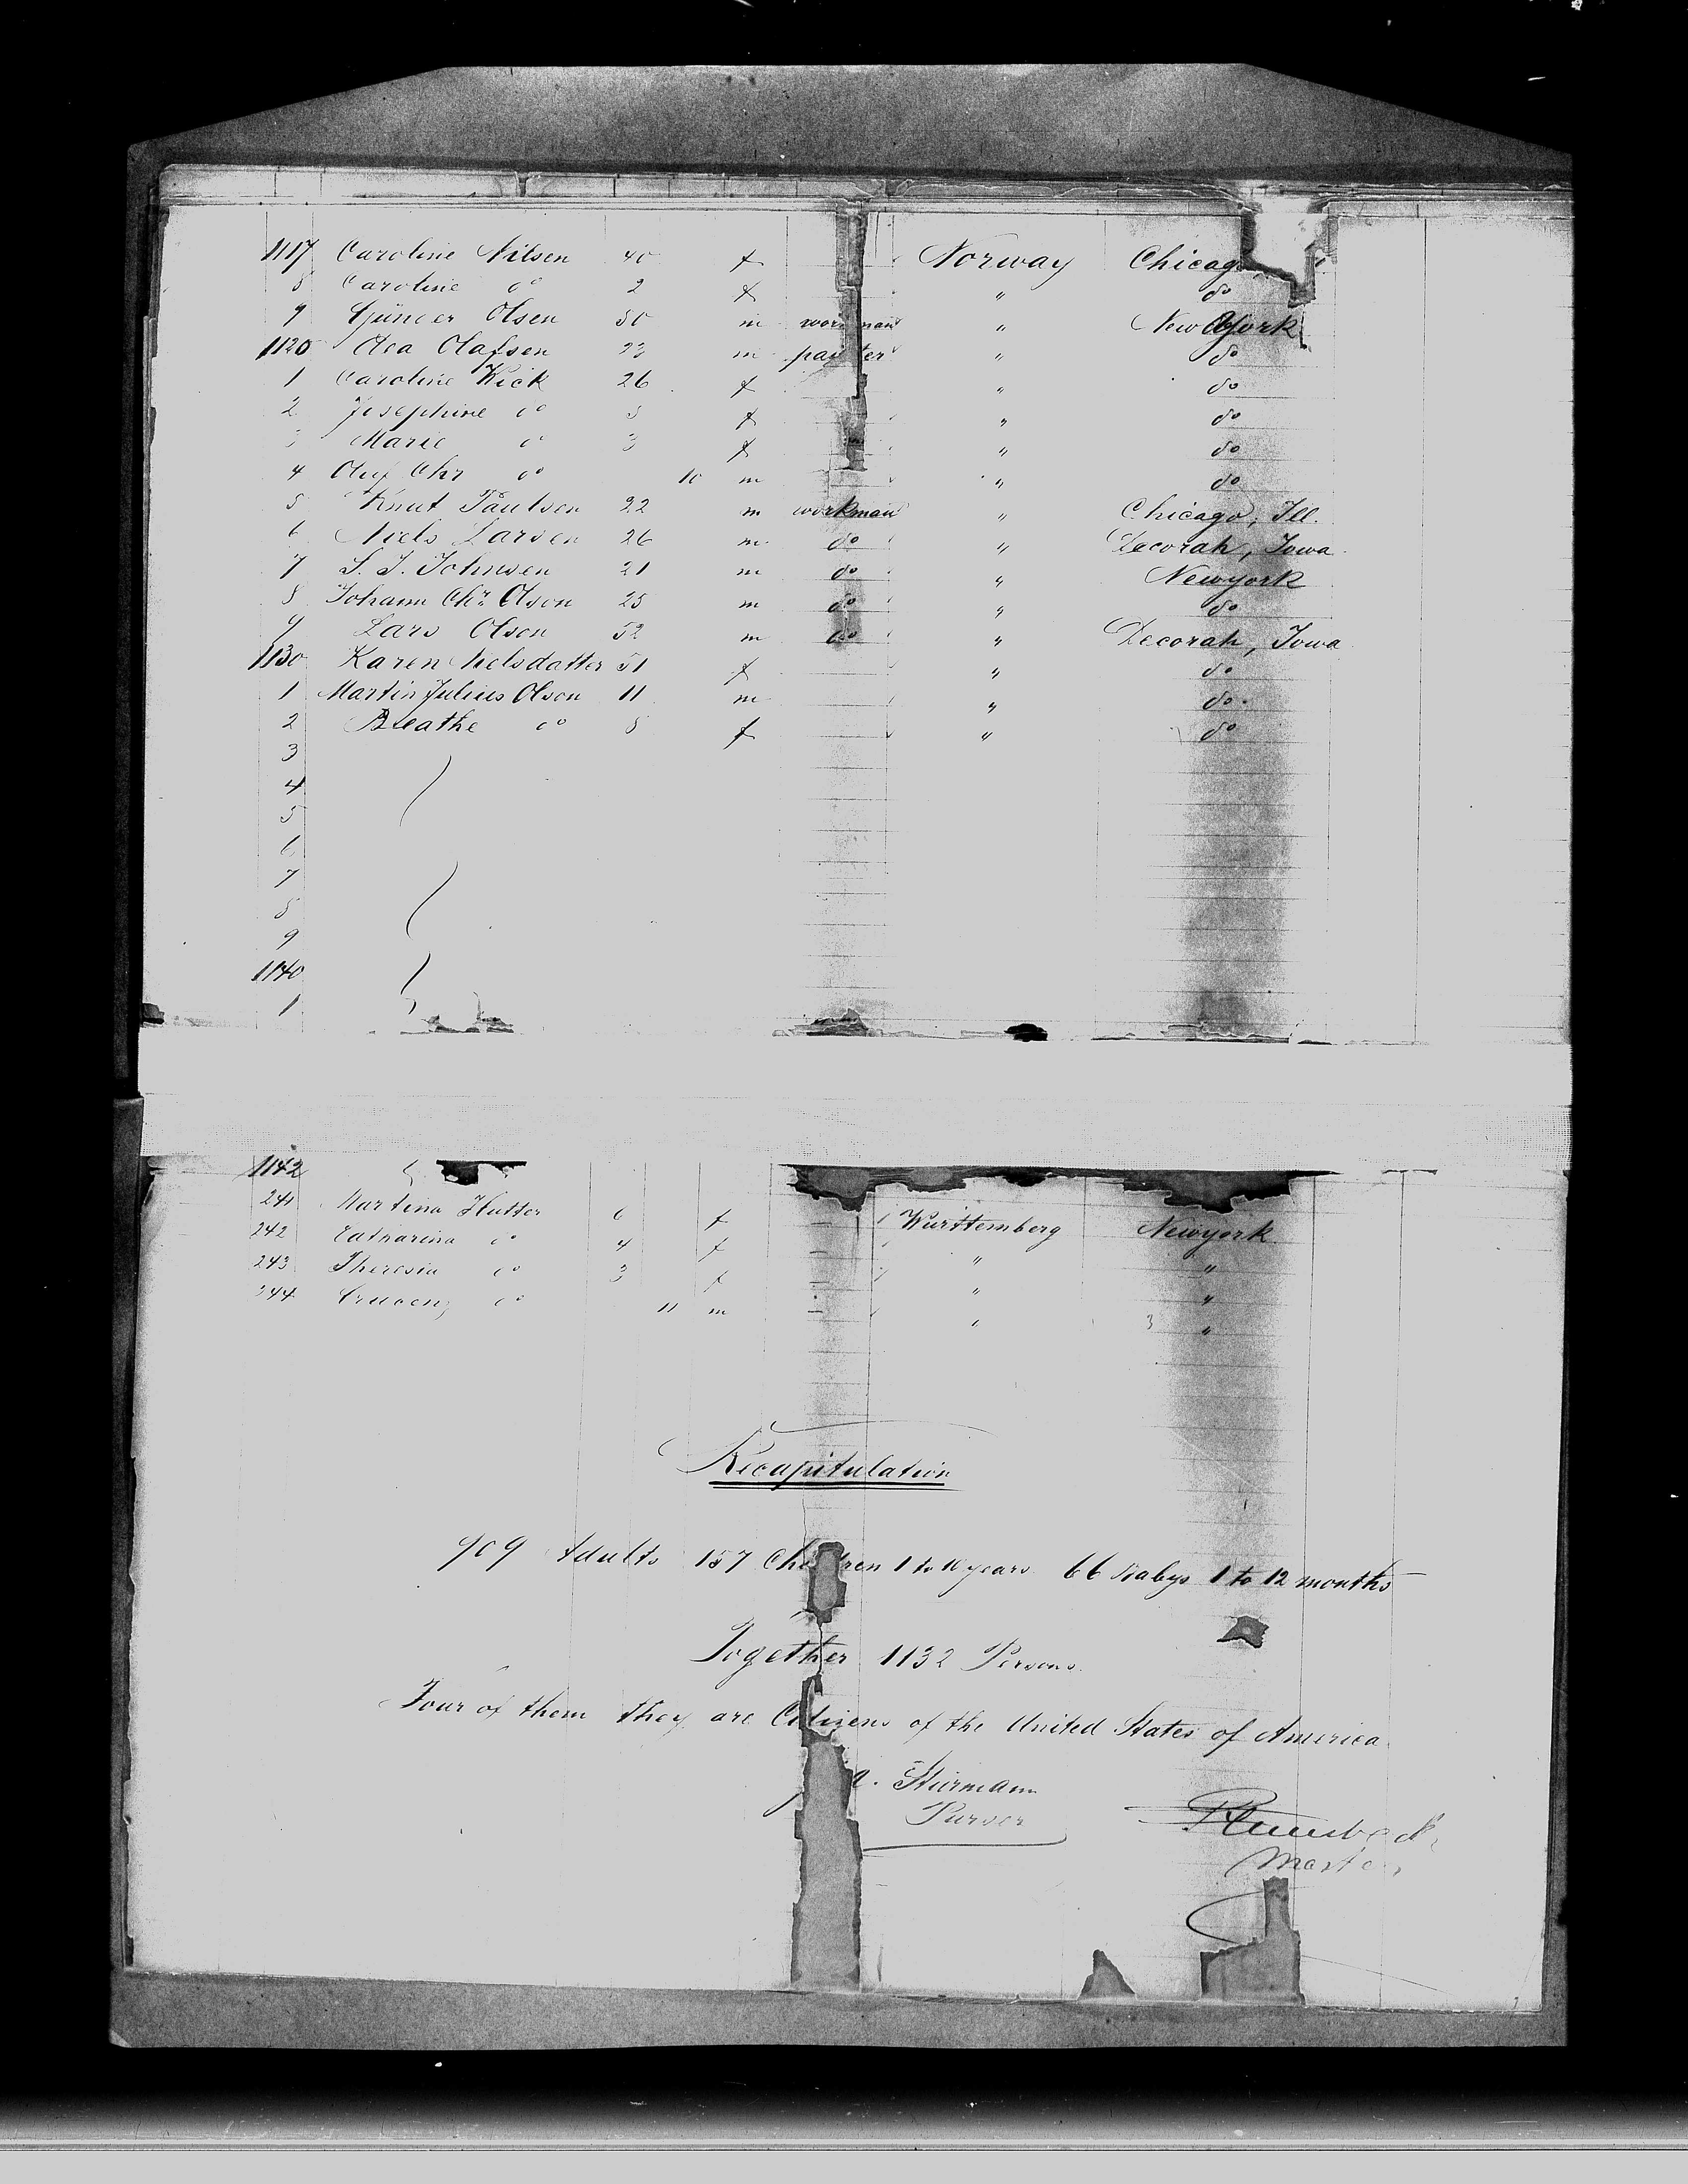 1117 Caroline Nilsen 40 f Norway Chicag
8 Caroline do 2 f " do
9 Olsen 50 m workman " New York
1120 Olafsen 23 m painter " do
1 Caroline Kick 26 f " do
2 Josephine do f " do
3 Marie do 3 f " do
4 Oluf Chr do 10 m " do
5 Knut Paulsen 22 m workman " Chicago, Ill.
6 Niels Larsen 26 m do " Decorah, Iowa
7 S. J. Johnsen 21 m do " Newyork
8 Johann Chr. Olson 25 m do " do
9 Lars Olson 52 m do " Decorah, Iowa
1130 Karen Nielsdatter 51 f " do
1 Martin Julius Olson 11 m " do
2 Beathe do 8 f " do
3
4
5
6
7
8
9
1140
1
1142
241 Martina Hutter 6 f – Württemberg Newyork
242 Catharina do 4 f – " "
243 Theresia do 3 f – " "
244 do 11 m – " "
Recapitulation
909 Adults 157 Children 1 to 10 years 66 Babys 1 to 12 months
Together 1132 Persons.
Four of them they are Citizens of the United States of America
Stürmann
Purser
Master